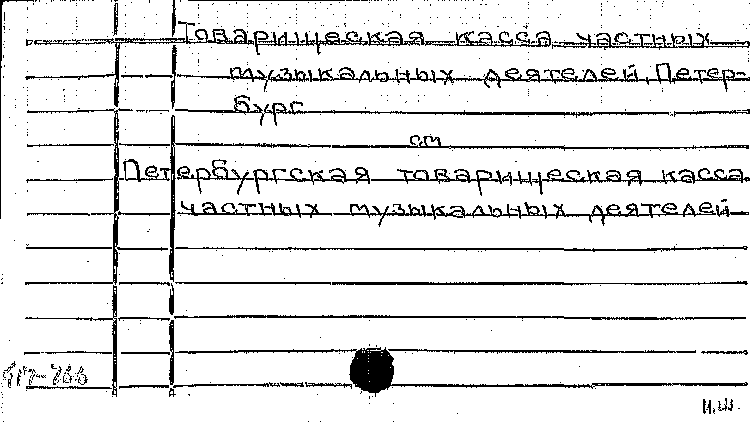 Товарищеская касса частных
музыкальных деятелей, Петер-
бург
см
Петербургская товарищеская касса
частных музыкальных деятелей
И.Ш.